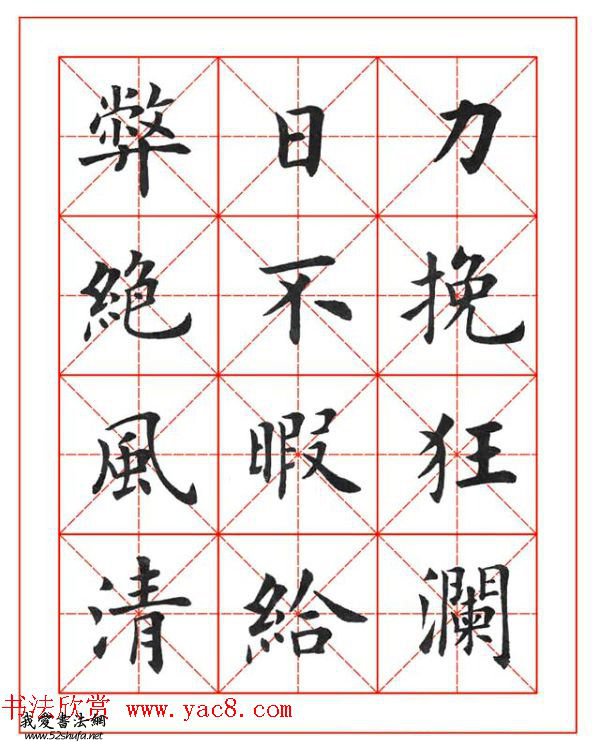 力挽狂瀾
日不暇給
弊絕風清
书法欣赏 www.yac8.com
我爱书法網
www.52shufa.net